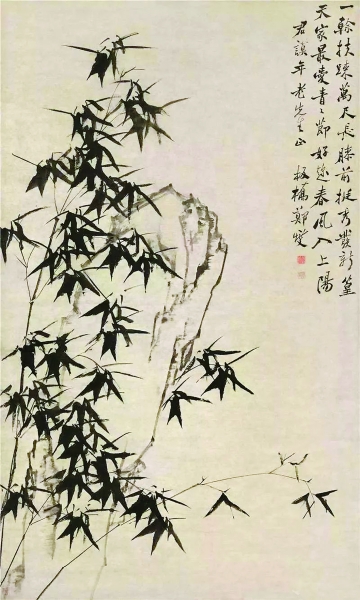 一幹扶踈萬尺長膝前挺秀發新篁
天家最愛青々節好春風入上陽
君年老先生正 板橋鄭燮